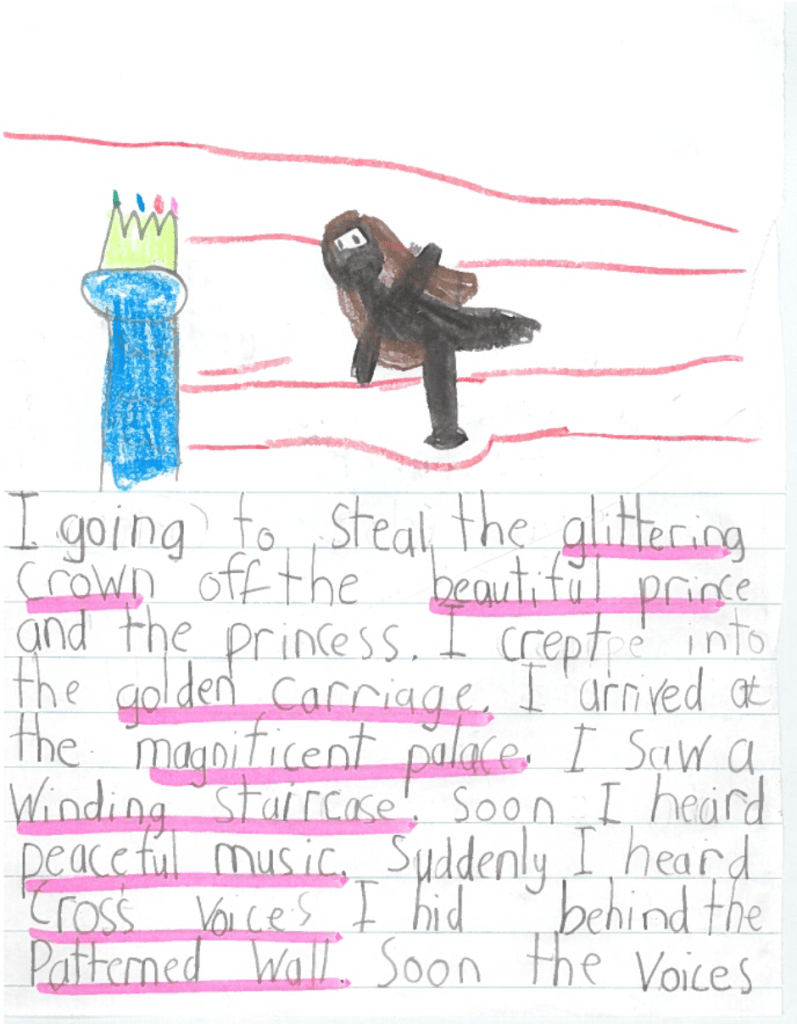 I going to steal the glittering
crown off the beautiful prince
and the princess. I crept into
the golden carriage. I arrived at
the magnificent palace. I saw a
winding staircase. Soon I heard
peaceful music. Suddenly I heard
cross voices I hid behind the
Patterned wall. Soon the voices